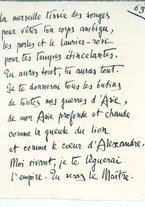 63
la merveille tissée des songes
pour vêtir ton corps ambigu,
les perles et le laurier-rose
pour tes tempes étincelantes.
Tu auras tout, tu auras tout.
Je te donnerai tous les butins
de toutes nos guerres d'Asie,
de mon Asie profonde et chaude
comme la gueule du lion
et comme le cœur d'Alexandre.
Moi vivant, je te léguerai
l'empire. Tu seras le Maître.